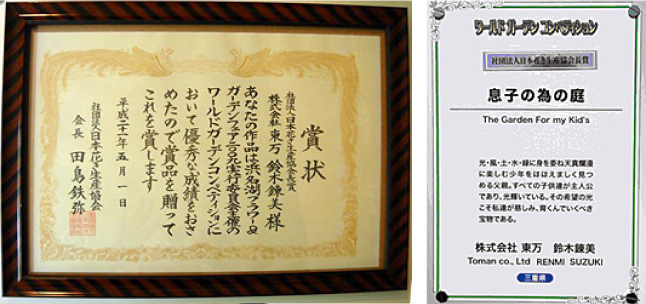 賞状
社団法人日本花き生産協会長賞
株式会社 東万 鈴木錬美 様
あなたの作品は浜名湖フラワー&
ガーデンフェア二〇〇九実行委員会主催の
ワールドガーデンコンペティションに
おいて優秀な成績をおさ
めたので賞品を贈って
これを賞します
平成二十一年五月一日
社団法人日本花き生産協会
会長 田島鉄弥
ワールド ガーデン コンペティション
社団法人日本花き生産協会長賞
息子の為の庭
The Garden For my Kid's
光・風・土・水・緑に身を委ね天真爛漫
に楽しむ少年をほほえましく見つ
める父親。すべての子供達が主人公
であり、光輝いている。その希望の光
こそ私達が慈しみ、育くんでいくべき
宝物である。
株式会社 東万 鈴木錬美
Toman co., Ltd RENMI SUZUKI
三重県